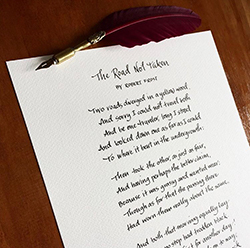 The Road Not Taken
BY ROBERT FROST
Two roads diverged in a yellow wood,
And sorry I could not travel both
And be one traveler, long I stood
And looked down one as far as I could
To where it bent in the undergrowth;
Then took the other, as just as fair,
And having perhaps the better claim,
Because it was grassy and wanted wear;
Though as for that the passing there
Had worn them really about the same,
And both that morning equally lay
step had trodden black.
for another day!
to way,